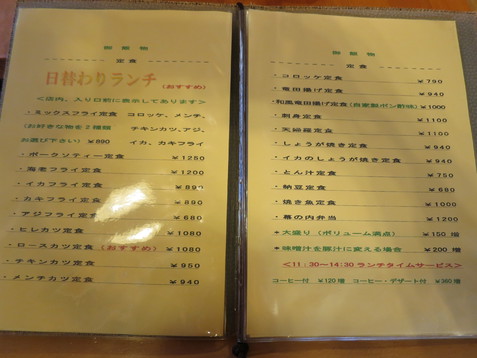 御献物
定食
日替わりランチ (おすすめ)
<店内、入り口前に表示してあります>
・ミックスフライ定食 コロッケ、メンチ、
(お好きな物を2種類 チキンカツ、アジ、
お選び下さい) ¥890 イカ、カキフライ
・ポークソティー定食 ¥1250
・海老フライ定食 ¥1200
・イカフライ定食 ¥890
・カキフライ定食 ¥890
・アジフライ定食 ¥680
・ヒレカツ定食 ¥1080
・ロースカツ定食 (おすすめ) ¥1080
・チキンカツ定食 ¥950
・メンチカツ定食 ¥940
御献物
定食
・コロッケ定食 ¥790
・竜田揚げ定食 ¥940
・和風竜田揚げ定食(自家製ポン酢味) ¥1000
・刺身定食 ¥1100
・天婦羅定食 ¥1100
・しょうが焼き定食 ¥940
・イカのしょうが焼き定食 ¥940
・とん汁定食 ¥750
・納豆定食 ¥680
・焼き魚定食 ¥1000
・幕の内弁当 ¥1200
*大盛り (ボリューム満点) ¥150 増
*味噌汁を豚汁に変える場合 ¥200 増
<11:30ー14:30 ランチタイムサービス>
コーヒー付 ¥120増 コーヒー・デザート付 ¥360増